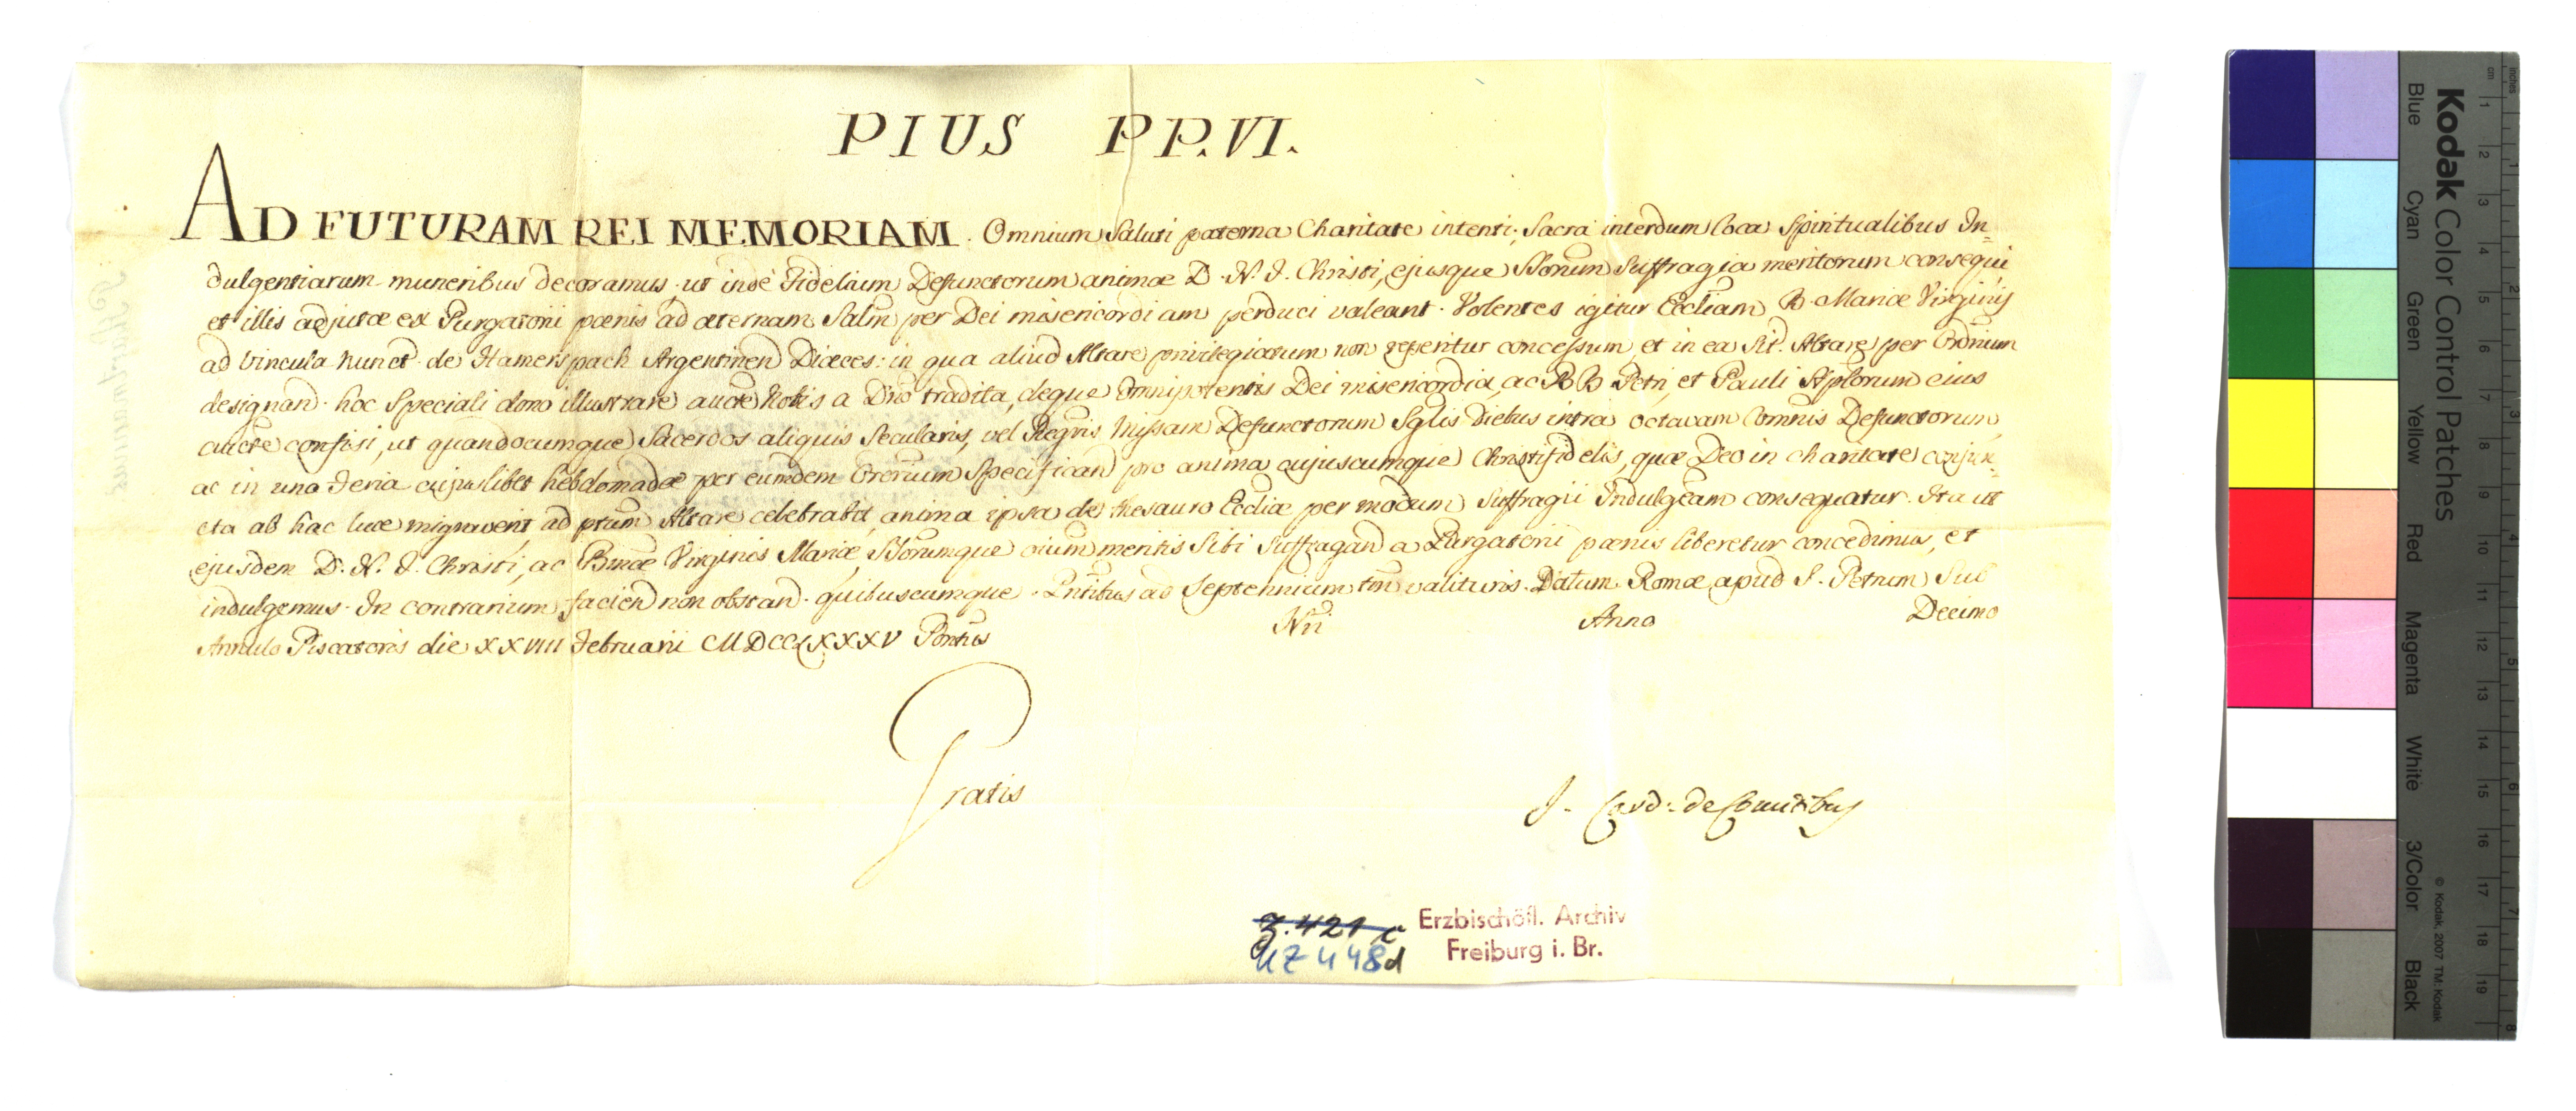 PIUS PP. VI.
AD FUTURAM REI MEMORIAM. Omnium Saluti paterna Charitate intenti, Sacra interdum loca Spiritualibus In-
dulgentiarum muneribus decoramus ut inde Fidelium Defunctorum animæ D. N. J. Christi, ejusque SSorum Suffragia meritorum consequi
et illis adjutæ ex Purgatorii pœnis ad æternam Salm per Dei misericordiam perduci valeant. Volentes igitur Eccliam B. Mariæ Virginis
ad Vincula nunct. de Hamerspach Argentinen Diæces: in qua aliud Altare privilegiatum non reperitur concessum et in ea sit. Altare per Ordrium
designand. hoc Speciali dono illustrare aucte Nobis a Dno tradita, deque Omnipotentis Dei misericordia, ac BB Petri, et Pauli Aplorum eius
aucte confisi, ut quandocumque Sacerdos aliquis Secularis, vel Regris Missam Defunctorum Sglis diebus intra octavam Comnis Defunctorum,
ac in una Feria cujuslibet hebdomadæ per eumdem Ordrium Specifican pro anima cujuscumque Christifidelis, quæ Deo in charitate conjun-
cta ab hac luce migraverit, ad ptum Altare celebrabit, anima ipsa de thesauro Ecclie per modum Suffragii Indulgeam consequatur. Ita ut
ejusdem D. N. J. Christi, ac Bmæ Virginis Mariæ, SSorumque oium meritis Sibi Suffragand a Purgatorii pœnis liberetur concedimus, et
indulgemus. In contrarium facien non obstan. quibuscumque. Pntibus ad Septennium tm valituris. Datum Romæ apud S. Petrum Sub
Annulo Piscatoris die XXVIII Februarii MDCCLXXXV Pontus Nri Anno Decimo
Gratis
J. Card: de Comitibus
Z. 421 c
UZ 448d
Erzbischöfl. Archiv
Freiburg i. Br.
Kodak Color Control Patches
Blue Cyan Green Yellow Red Magenta White 3/Color Black
© Kodak, 2007 TM: Kodak
inches 1 2 3 4 5 6 7 8
cm 1 2 3 4 5 6 7 8 9 10 11 12 13 14 15 16 17 18 19